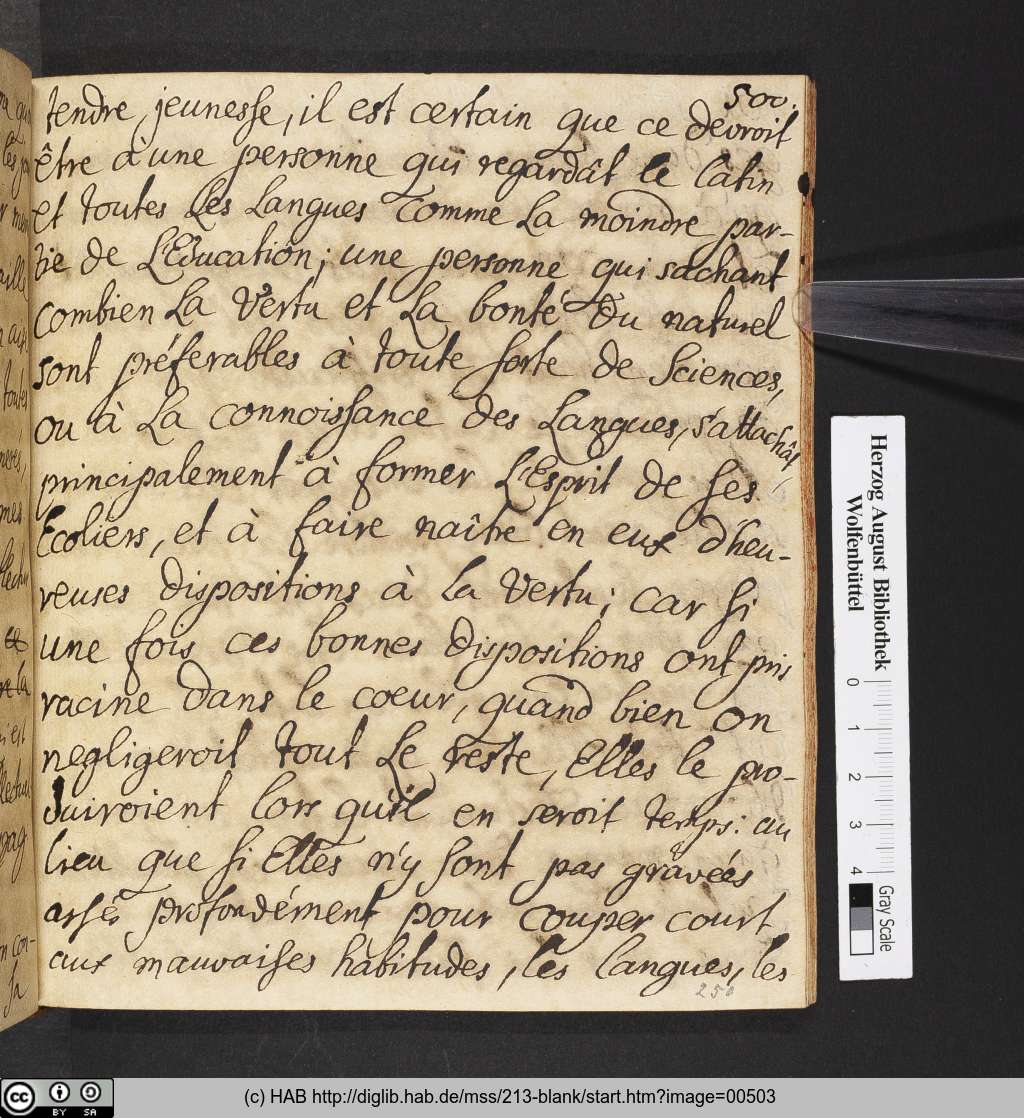 500.
tendre jeunesse, il est certain que ce devroit
être à une personne qui regardât le latin
et toutes Les Langues comme La moindre par-
tie de L'Education; une personne qui sachant
combien La Vertu et La bonté du naturel
sont préferables à toute sorte de Sciences,
ou à La connoissance des Langues, s'attachât
principalement à former L'Esprit de ses
Ecoliers, et à faire naître en eux d'heu-
reuses dispositions à La Vertu; car si
une fois ces bonnes dispositions ont pris
racine dans le coeur, quand bien on
negligeroit tout Le reste, Elles le pro-
duiroient lors qu'il en seroit temps: au
lieu que si Elles n'y sont pas gravées
assés profondément pour couper court
aux mauvaises habitudes, les langues, les
250
Herzog August Bibliothek
Wolfenbüttel
0 1 2 3 4
Gray Scale
cc BY SA
(c) HAB http://diglib.hab.de/mss/213-blank/start.htm?image=00503